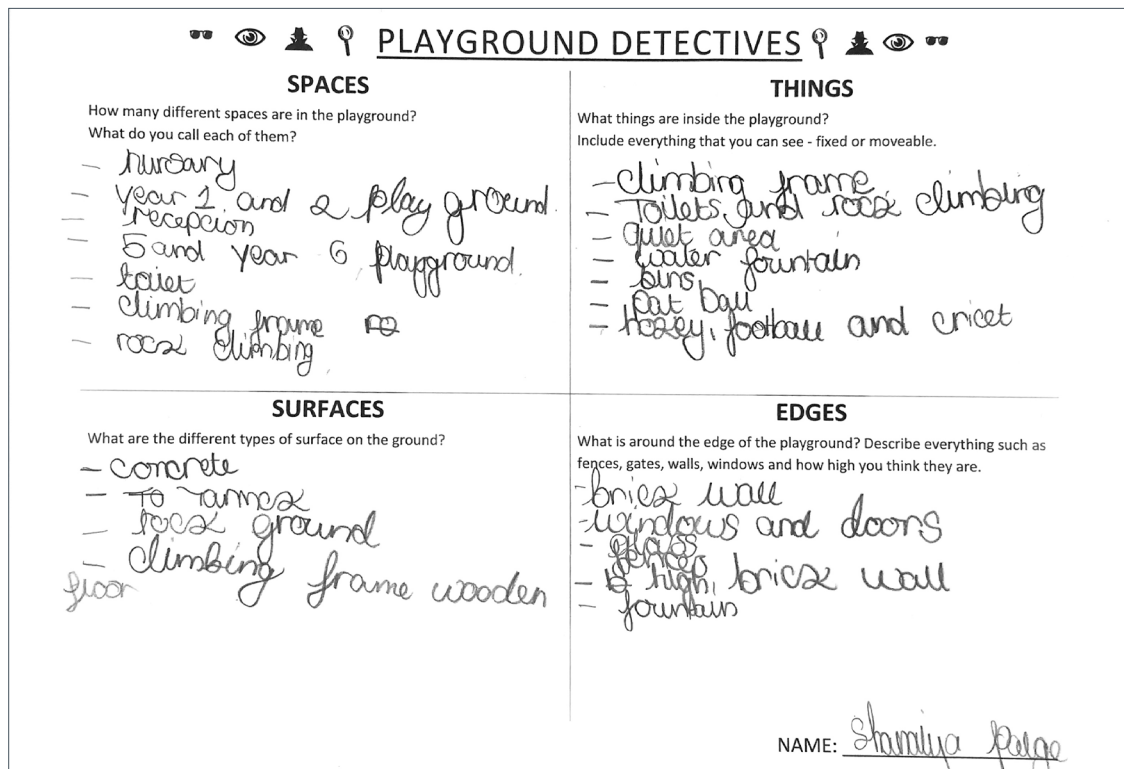 PLAYGROUND DETECTIVES
SPACES
How many different spaces are in the playground?
What do you call each of them?
- nursary
- year 1 and 2 play ground.
- recepcion
- 5 and year 6 playground.
- toilet
- climbing frame
- rock climbing
THINGS
What things are inside the playground?
Include everything that you can see - fixed or moveable.
- climbing frame
- Toilets, and rock climbing
- quiet area
- water fountain
- bins
- pat ball
- hokey, football and cricet
SURFACES
What are the different types of surface on the ground?
- concrete
- To
- rock ground
- climbing frame wooden
floor
EDGES
What is around the edge of the playground? Describe everything such as
fences, gates, walls, windows and how high you think they are.
- brick wall
- windows and doors
- glass
fences
- high, brick wall
- fountain
NAME: Shamiya Paige